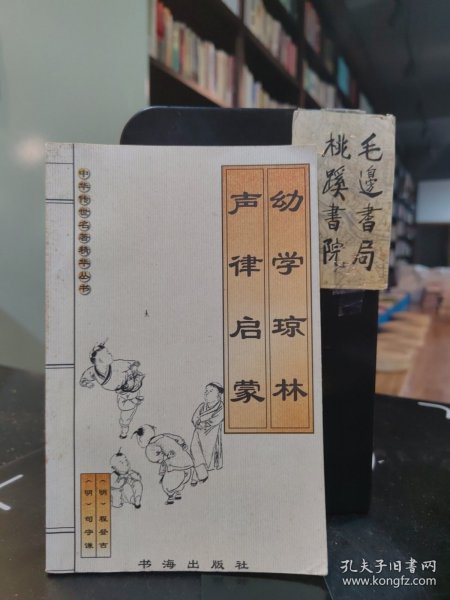 幼学琼林
声律启蒙
中华传世名著精华丛书
（明）程登吉
（明）守谦
书海出版社
毛邊書局
桃蹊書院
孔夫子旧书网
www.kongfz.com